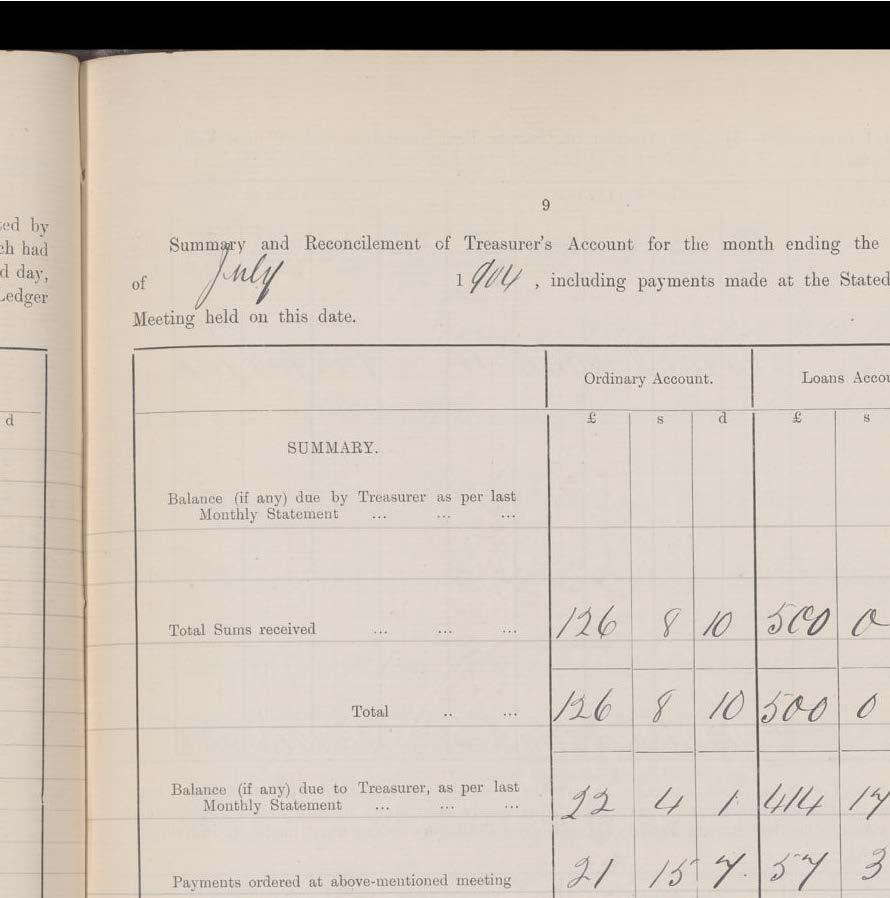 ted by
ch had
d day,
Ledger
d
9
Summary and Reconcilement of Treasurer's Account for the month ending the
of July 1904 , including payments made at the Stated
Meeting held on this date.
Ordinary Account. Loans Accou
£ s d £ s
SUMMARY.
Balance (if any) due by Treasurer as per last
Monthly Statement ... ... ...
Total Sums received ... ... ... 126 8 10 500 0
Total .. ... 126 8 10 500 0
Balance (if any) due to Treasurer, as per last
Monthly Statement ... ... ... 22 4 1 414 17
Payments ordered at above-mentioned meeting 21 15 7. 57 3